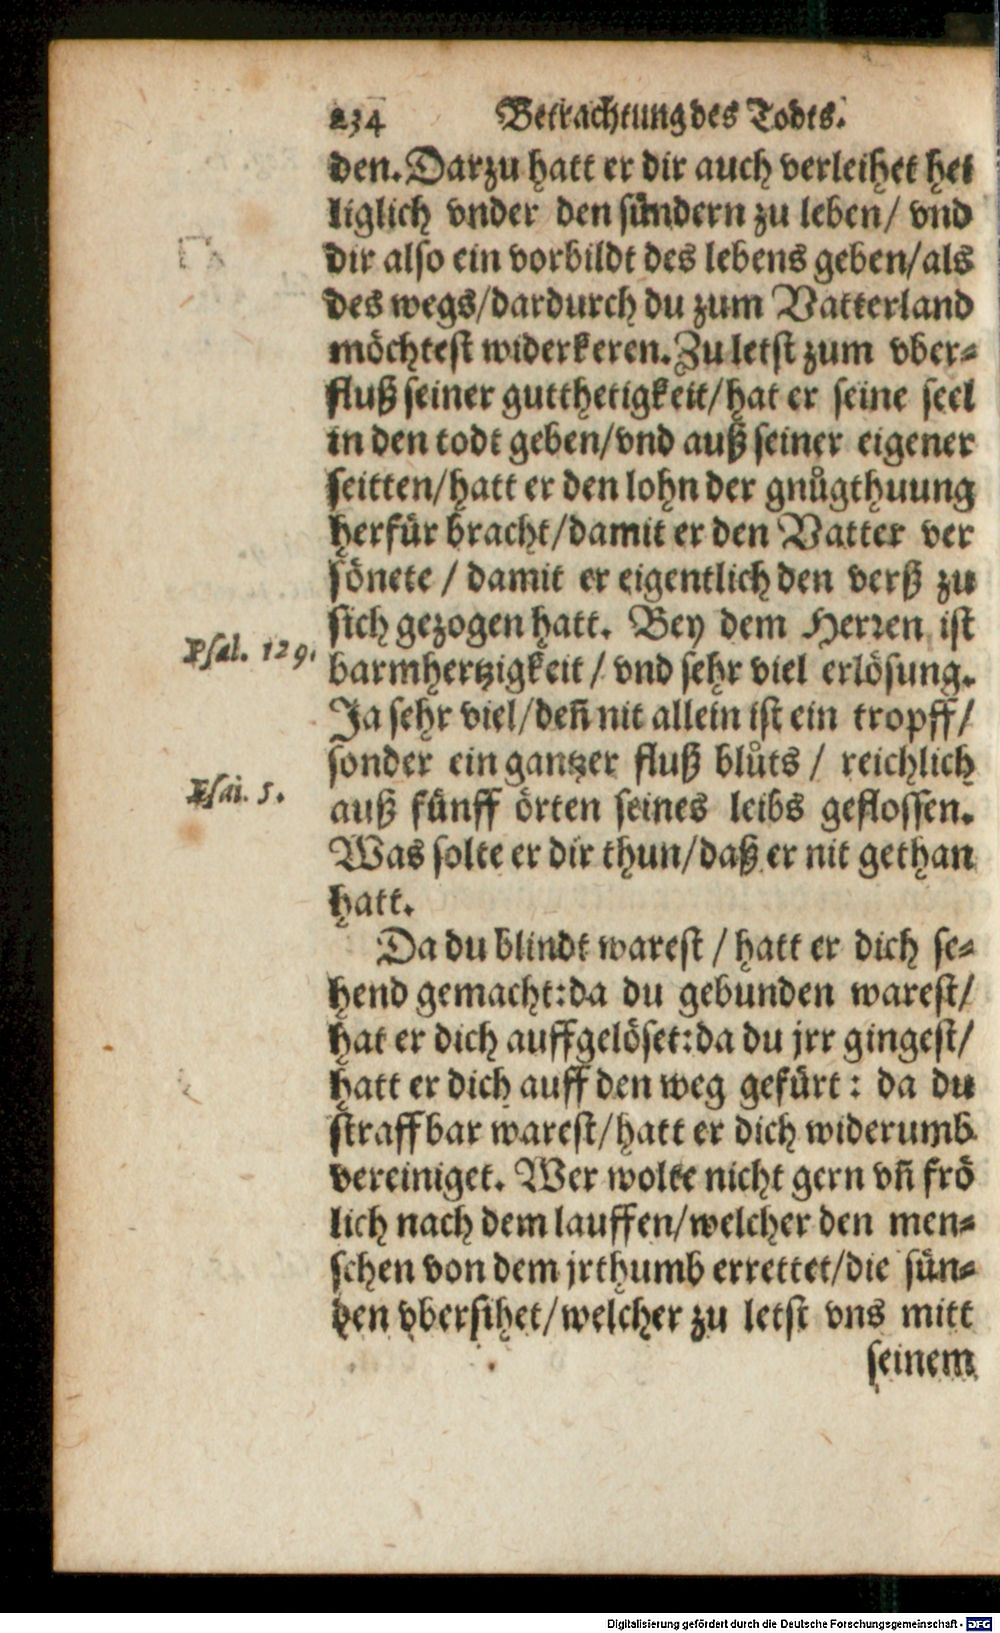 234 Betrachtung des Todts.
den. Darzu hatt er dir auch verleihet hei
liglich vnder den sündern zu leben/ vnd
dir also ein vorbildt des lebens geben/als
des wegs/dardurch du zum Vatterland
möchtest widerkeren. Zu letst zum vber-
fluß seiner gutthetigkeit/hat er seine seel
in den todt geben/vnd auß seiner eigener
seitten/hatt er den lohn der gnůgthuung
herfür bracht/damit er den Vatter ver
sönete / damit er eigentlich den verß zu
sich gezogen hatt. Bey dem Herren ist
Psal. 129.
barmhertzigkeit / vnd sehr viel erlösung.
Ja sehr viel/deñ nit allein ist ein tropff/
sonder ein gantzer fluß blůts / reichlich
Psai. 5.
auß fünff örten seines leibs geflossen.
Was solte er dir thun/daß er nit gethan
hatt.
Da du blindt warest / hatt er dich se-
hend gemacht:da du gebunden warest/
hat er dich auffgelöset:da du jrr gingest/
hatt er dich auff den weg gefürt: da du
straffbar warest/hatt er dich widerumb
vereiniget. Wer wolte nicht gern vñ frö
lich nach dem lauffen/welcher den men-
schen von dem jrthumb errettet/die sün-
den vbersihet/welcher zu letst vns mitt
seinem
Digitalisierung gefördert durch die Deutsche Forschungsgemeinschaft - DFG